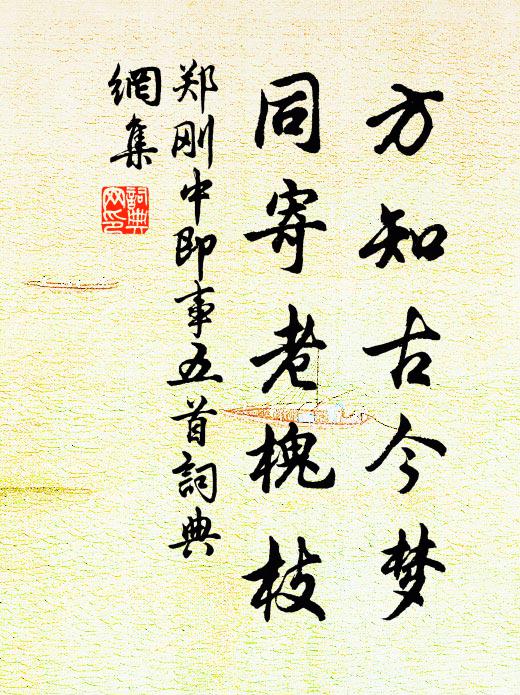 方知古今梦
同寄老槐枝
郑刚中即事五首詞典
網集
詞典
网印